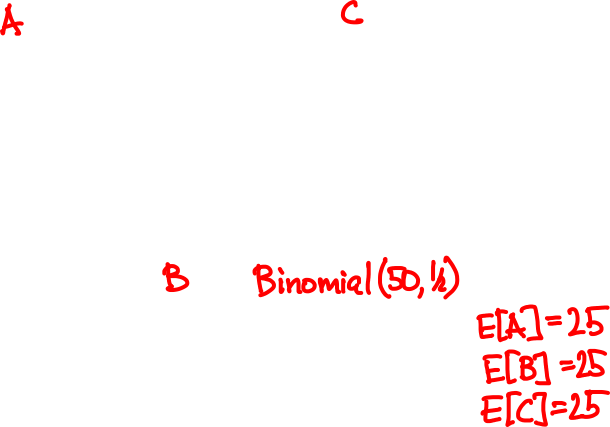 A C
B Binomial(50, 1/2)
E[A]=25
E[B]=25
E[C]=25